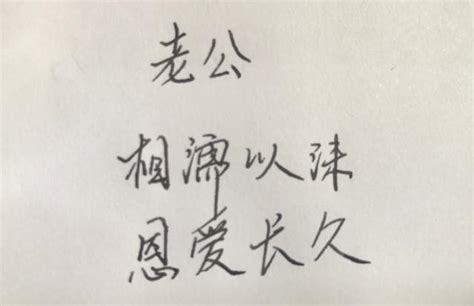 老公
相濡以沫
恩爱长久